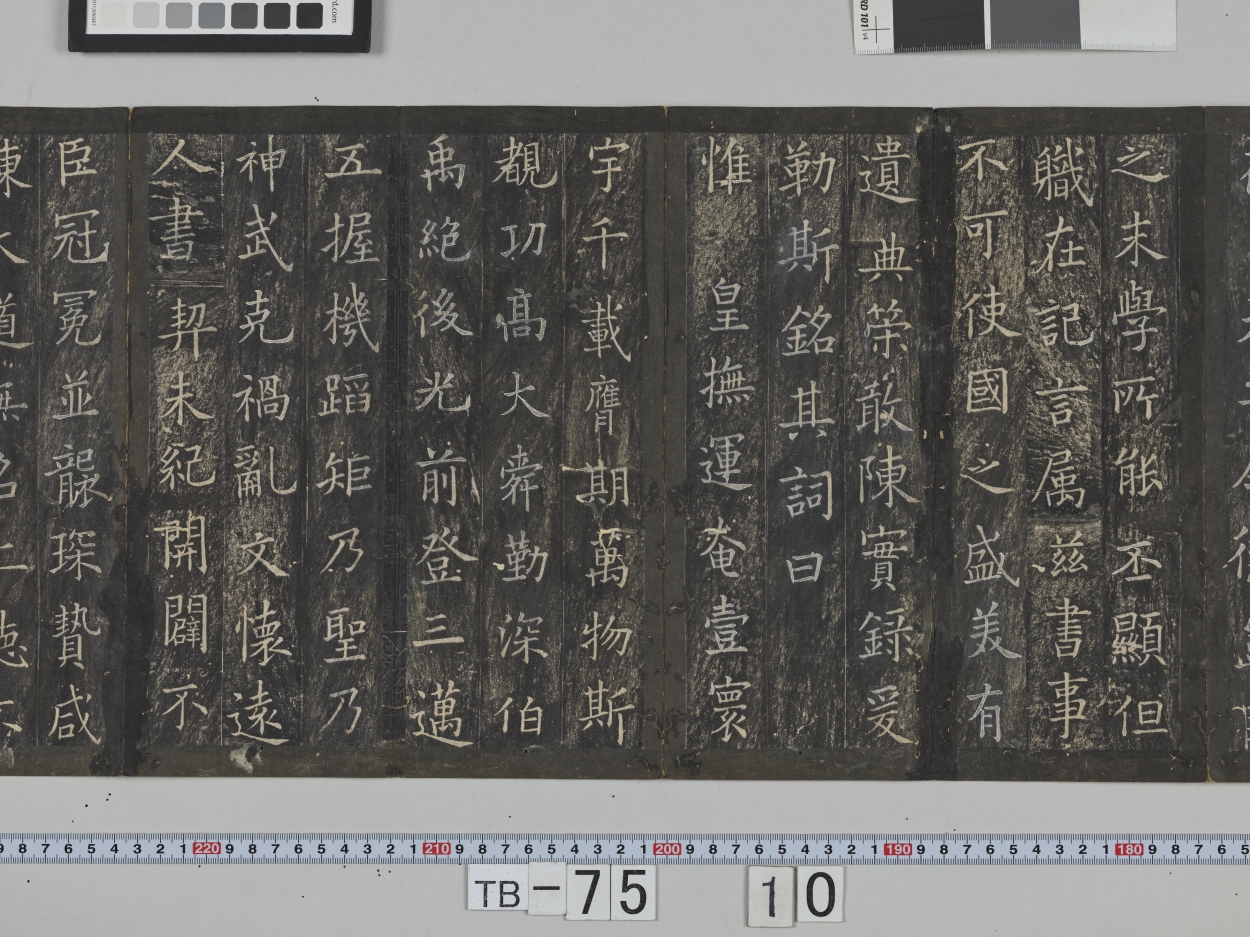 之末學所能丕顯但
軄在記言属茲書事
不可使國之盛美有
遺典策敢陳實録爰
勒斯銘其詞曰
惟 皇撫運奄壹寰
宇千載膺期萬物斯
覩功髙大舜勤深伯
禹絶後光前登三邁
五握機蹈矩乃聖乃
神武克禍亂文懷遠
人書契未紀開闢不
臣冠冕並襲琛贄咸
陳大道無名上徳不
TB-75 10